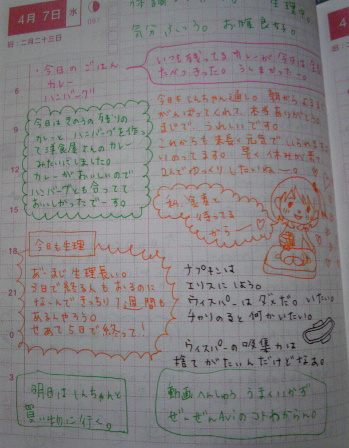 4月 7日 水
旧:二月二十三日
気分ふつう。お腹良好。
・今日のごはん
カレー
ハンバーグ
いつも残ってるカレーが今日は全
たべきった。うまかったー。
今日はきのうの残りの
カレーと ハンバーグを作っ
て洋食屋さんのカレー
みたいにしました。
カレーがおいしいので
ハンバーグとも合ってて
おいしかったでーす。
今日もしんちゃん通し。朝から
がんばってくれて、本当ありがとう。
まじで、うれしいです。
これからも幸せ元気で
いのってます。早く休みが
2人でゆっくりしたいねー。
私、食事と
待ってる
から
今日も生理
あーまじ生理長い。
5日で終る人もおるのに
なーんできっちり1週間も
あるんやろう。
せめて5日で終って!
ナプキンは
エリスにしよう。
ウィスパーはダメだ。いたい。
チャリのると何かいたい。
ウィスパーの吸集力は
捨てがたいんだけどなあ。
明日はしんちゃんと
買い物に行く。
動画へんしゅう うまくいかず
ぜーぜんAviのコトわからん。
6
9
12
15
18
21
0
3